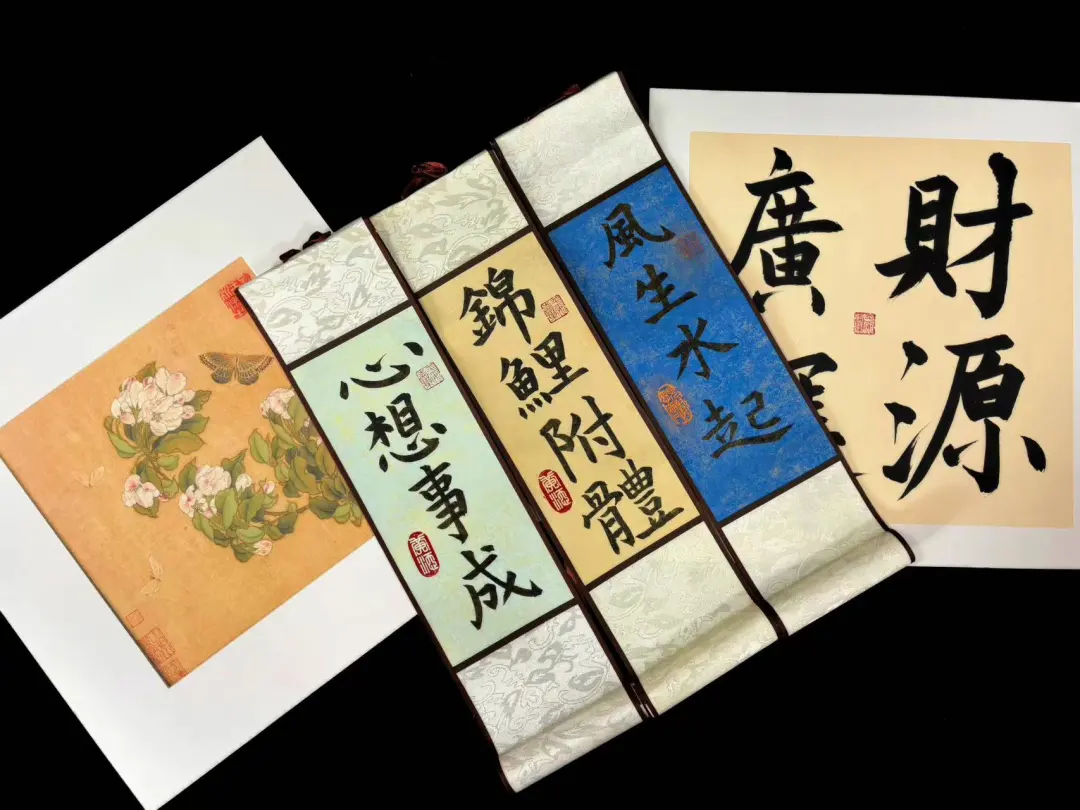 心想事成
錦鯉附體
風生水起
財源
廣